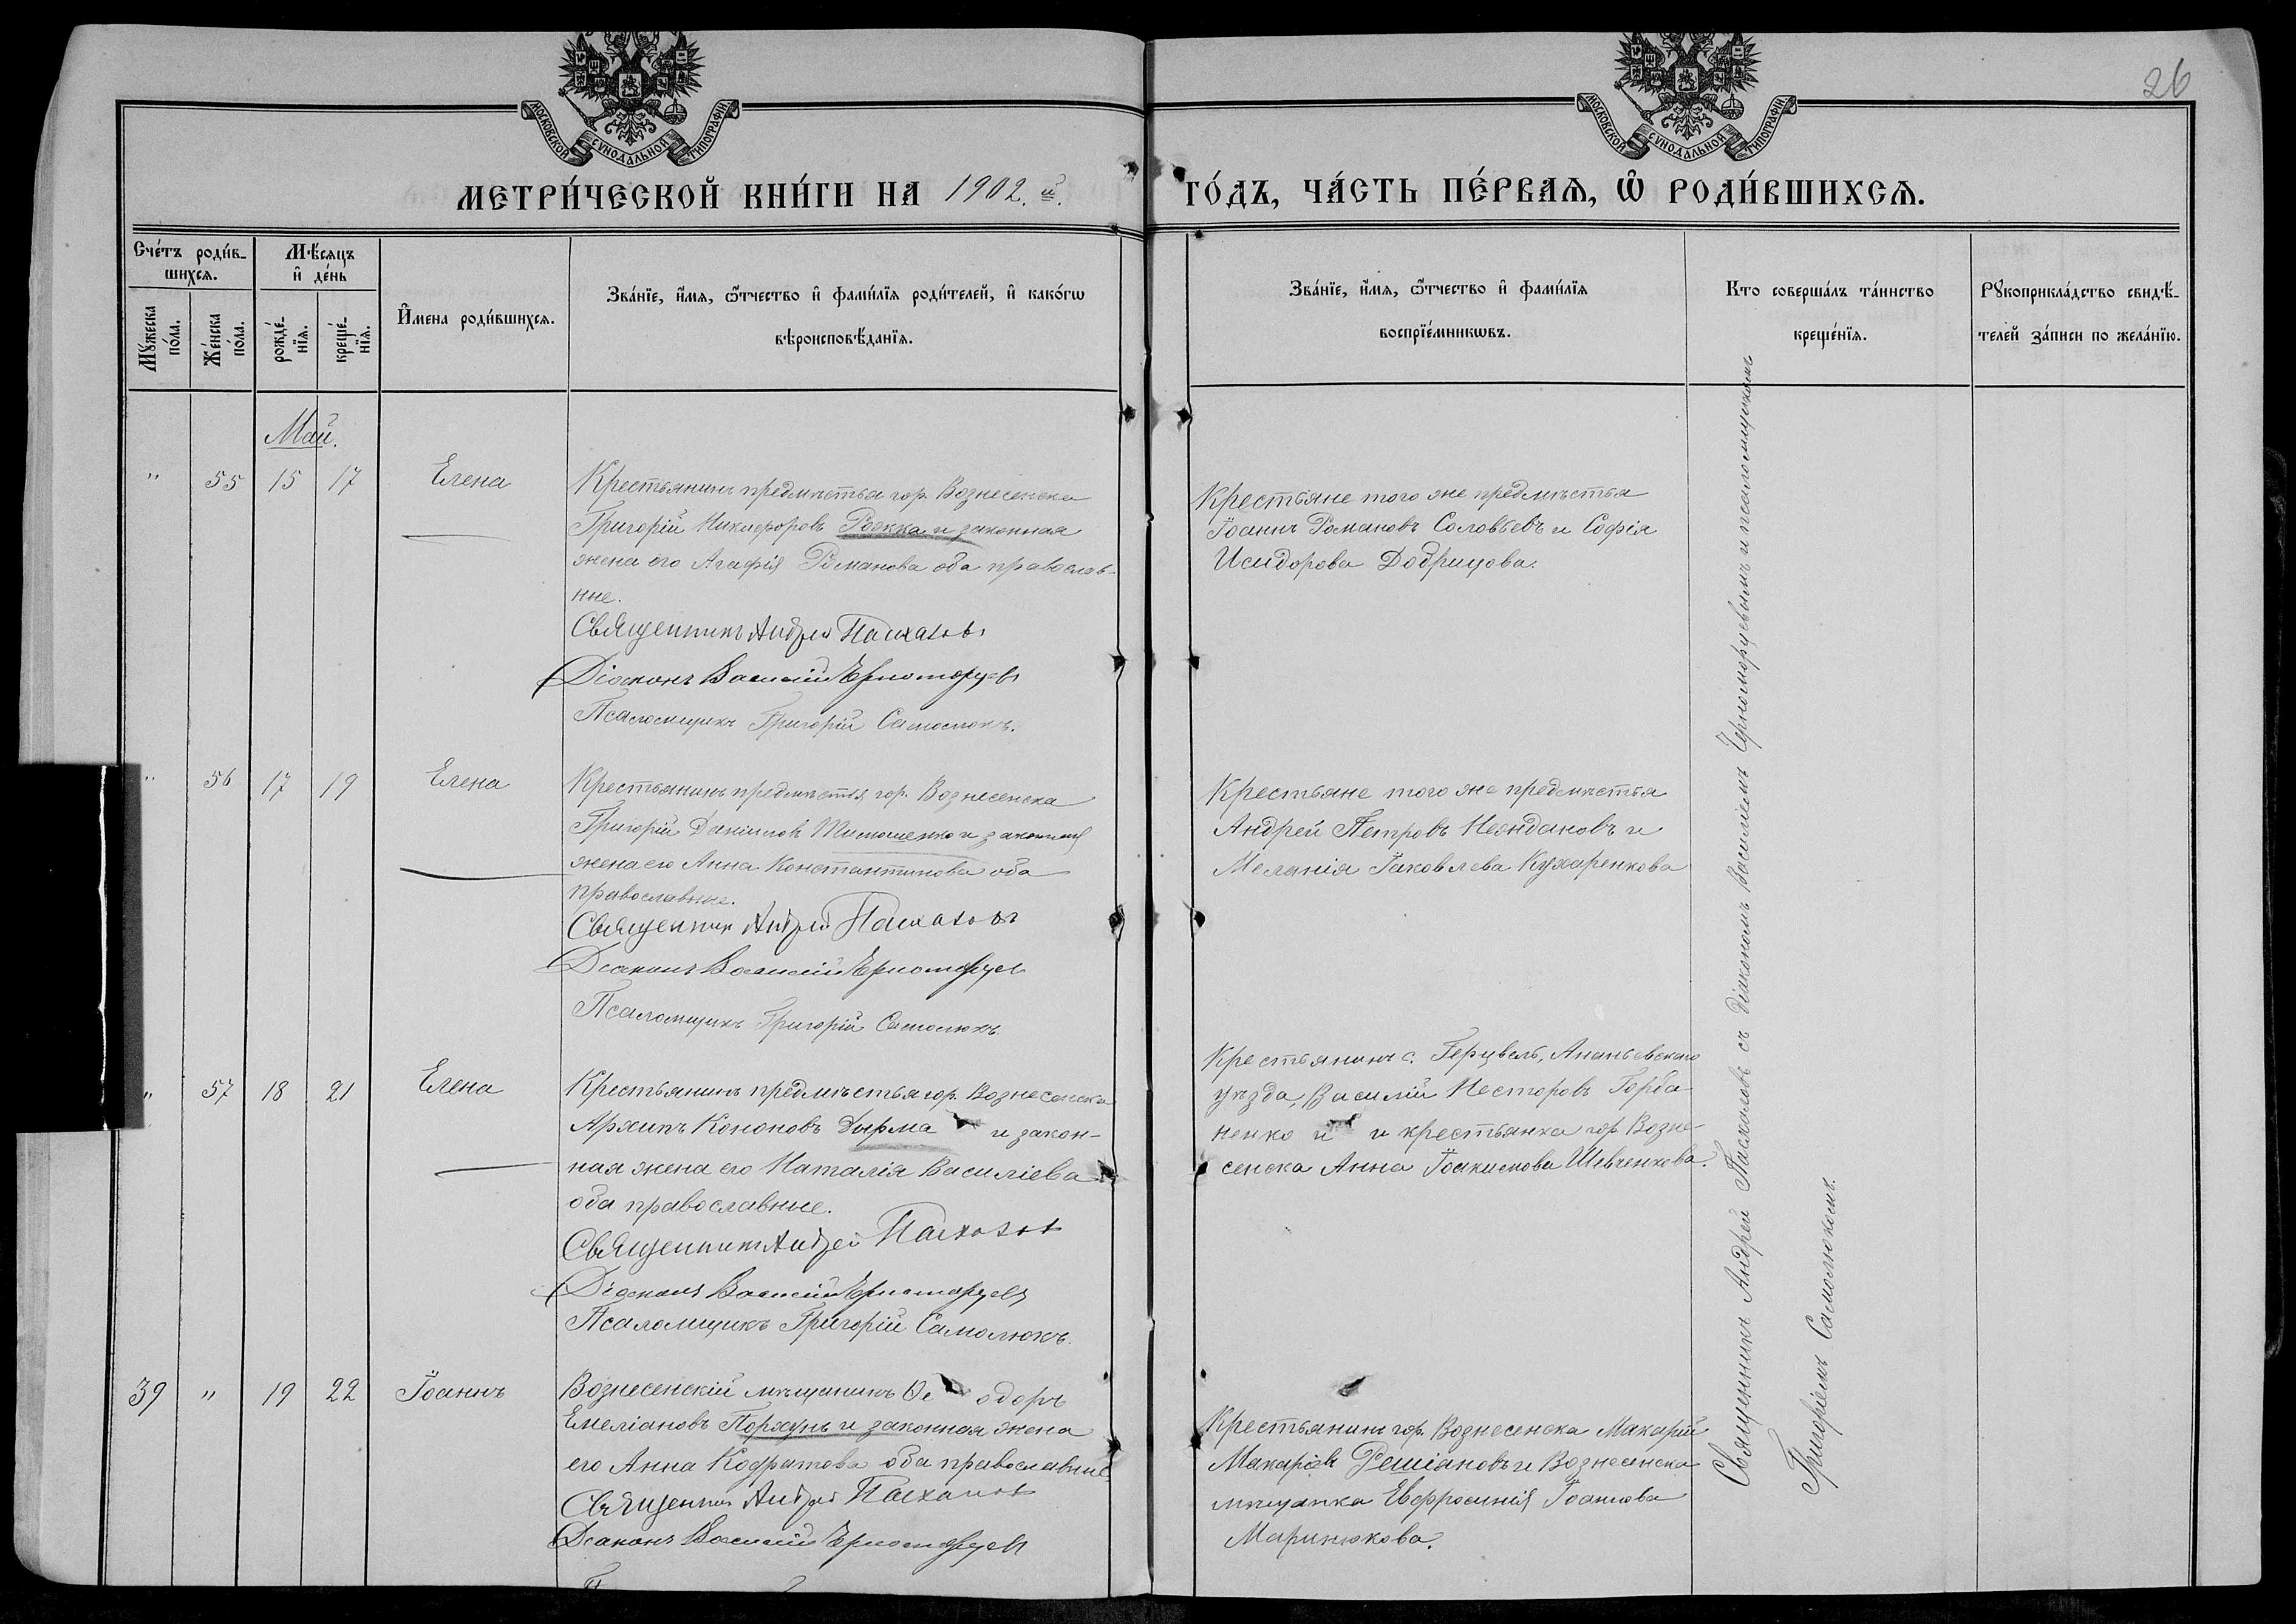 26
МОСКОВСКОЙ СѴНОДАЛЬНОЙ ТИПОГРАФІИ
МОСКОВСКОЙ СѴНОДАЛЬНОЙ ТИПОГРАФІИ
МЕТРИ́ЧЕСКОЙ КНИ́ГИ НА 1902.й. ГО́ДЪ, ЧА́СТЬ ПЕ́РВАѦ, Ѿ РОДИ́ВШИХСѦ.
Сче́тъ роди́в-
шихсѧ.
Мꙋ́жеска
по́ла.
Же́нска
по́ла.
Мѣ́сѧцъ
и҆ де́нь
рожде́-
нїѧ.
креще́-
нїѧ.
И҆́мена роди́вшихсѧ.
Зва́нїе, и҆́мѧ, ѻ҆́тчество и҆ фами́лїѧ роди́телей, и҆ како́гѡ
вѣроисповѣ́данїѧ.
Зва́нїе, и҆́мѧ, ѻ҆́тчество и҆ фами́лїѧ
воспрїе́мникѡвъ.
Кто соверша́лъ та́инство
креще́нїѧ.
Рꙋкоприкла́дство свидѣ́-
телей за́писи по жела́нїю.
Май.
" 55 15 17 Елена
Крестьянинъ предмѣстья гор. Вознесенска
Григорій Никифоровъ Рожка и законная
жена его Агафія Романова оба православ-
ные.
Священникъ Андрей Пасхаловъ
Діаконъ Василій Черноморцевъ
Псаломщикъ Григорій Самолюкъ.
Крестьяне того же предмѣстья
Іоаннъ Романовъ Соловьевъ и Софія
Исидорова Добрицова.
" 56 17 19 Елена
Крестьянинъ предмѣстья гор. Вознесенска
Григорій Даніиловъ Тимошенко и законная
жена его Анна Константинова оба
православные.
Священникъ Андрей Пасхаловъ
Діаконъ Василій Черноморцевъ
Псаломщикъ Григорій Самолюкъ.
Крестьяне того же предмѣстья
Андрей Петровъ Неждановъ и
Меланія Іаковлева Кухаренкова
" 57 18 21 Елена
Крестьянинъ предмѣстья гор. Вознесенска
Архипъ Кононовъ Дырма и закон-
ная жена его Наталія Василіева
оба православные.
Священникъ Андрей Пасхаловъ
Діаконъ Василій Черноморцевъ
Псаломщикъ Григорій Самолюкъ.
Крестьянинъ с. Герцвелъ, Ананьевскаго
уѣзда, Василій Несторовъ Горба-
ненко и и крестьянка гор. Возне-
сенска Анна Іоакимова Шевченкова.
39 " 19 22 Іоаннъ
Вознесенскій мѣщанинъ Ѳе одоръ
Емеліановъ Порхунъ и законная жена
его Анна Кодратова оба православные
Священникъ Андрей Пасхаловъ
Діаконъ Василій Черноморцевъ
Крестьянинъ гор. Вознесенска Макарій
Макаріевъ Решіановъ и Вознесенска
мѣщанка Евфросинія Іоаннова
Маринюкова.
Священникъ Андрей Пасхаловъ съ діакономъ Василіемъ Черноморцевымъ и псаломщикомъ
Григоріемъ Самолюкомъ.